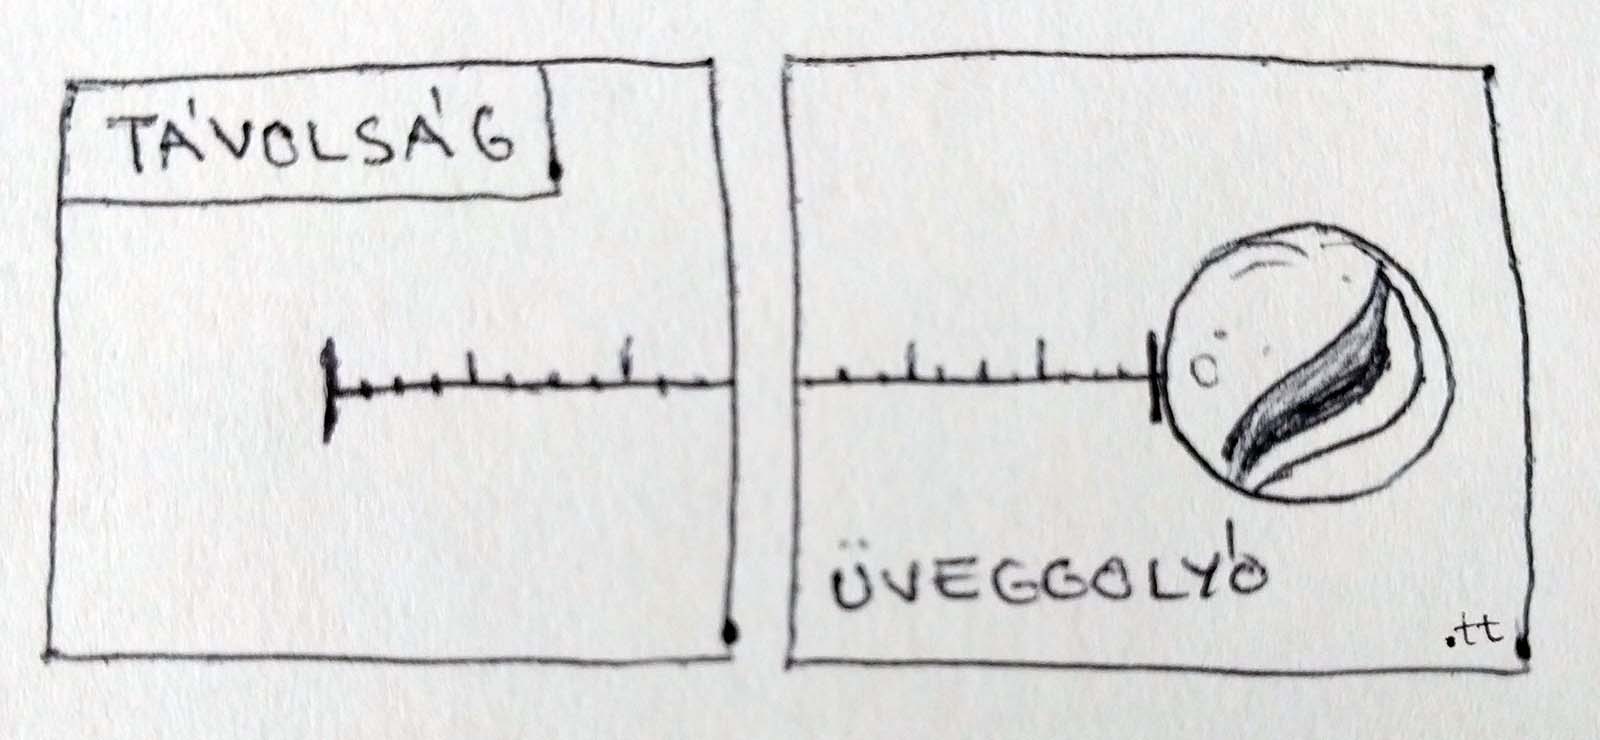 TÁVOLSÁG
ÜVEGGOLYÓ
.tt